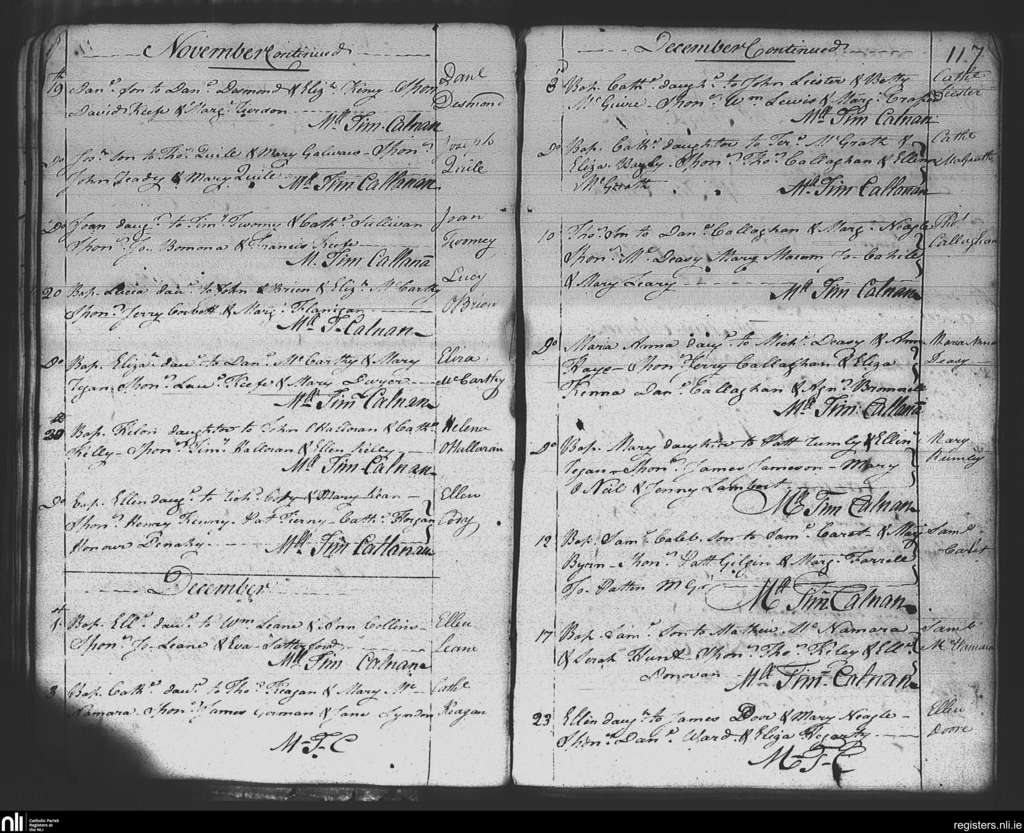 November Continued
19th Danl. Son to Danl. Desmond & Eliz. Finey Spon
David Keefe & Marg.
Mtt Tim Calnan
Danl
Desmond
Do Jos. Son to Tho. Quile & Mary Spon
John Leady & Mary Quile Mtt Tim Callanan
Joseph
Quile
Do Joan daugr. to Tim. Twomy & Cath. Sullivan
Spon. Jo. & Francis Keefe
M. Tim Callanā
Joan
Twomey
20 Bap. Lucia daur. to John O Brien & Eliz. McCarthy
Spon. Jerry Corbett & Marg. Flanigan
Mtt T. Calnan
Lucy
O Brien
Do Bap. Eliza daur. to Danl. McCarthy & Mary
Egan Spon. Law. Keefe & Mary Dwyer
Mtt Tim Calnan
Eliza
McCarthy
30 Bap. Helen daughter to John OHalloran & Cath.
Killy Spon. Tim. Halloran & Ellen Killy
Mtt Tim Calnan
Helena
OHallaran
Do Bap. Ellen daugr. to Rich. Cody & Mary
Spon. Henry Pat Tierny Cath. Horgan
Honour
Mtt Tim Callanan
Ellen
Cody
December
1st Bap. Ell. daur. to Wm Leane & Ann Collins
Spon. Jo. Leane & Eva
Mtt Tim Calnan
Ellen
Leane
3 Bap. Cath. daur. to Tho. Reagan & Mary Mc
Namara Spon. James Gorman & Jane Lyndon
M T C
Cathe
Reagan
December Continued
117
3d Bap. Cath. daughr. to John Lester & Betty
McGuire Spon. Wm Lewis & Marg.
Mtt Tim Calnan
Cathe
Lester
Do Bap. Cath. daughter to Ter. McGrath &
Eliza Spon. Tho. Callaghan & Ellen
McGrath Mtt Tim Callanan
Cathe
McGrath
10 Tho. Son to Danl. Callaghan & Marg. Neagle
Spon. M. Deasy Mary Jo. Cahile
& Mary Leary
Mtt Tim Calnan
Tho.
Callaghan
Do Maria Anna daugr. to Mich. Deasy & Anne
Haye Spon. Jerry Callaghan & Eliza
Kenna Danl. Callaghan &
Mtt Tim Callanā
Maria Anna
Deasy
Do Bap. Mary daughter to Patt Rumly & Ellin
Egan Spon. James Jameson Mary
O Neil & Jenny Lambert
Mtt Tim Calnan
Mary
Rumly
12 Bap. Saml. Caleb son to Saml. Caret & Mary
Byrn Spon. Patt Gilgin & Marg. Farrell
Jo. Patten
Mtt Tim Calnan
Saml.
Caret
17 Bap. Saml. Son to Mathew McNamara
& Sarah Hunt Spon. Tho. Kiley & Ell.
Donovan Mtt Tim Calnan
Saml
McNamara
23 Ellen daugr. to James Dore & Mary Neagle
Spon. Danl. Ward & Eliza Hegarty
M T C
Ellen
Dore
nli Catholic Parish
Registers at
the NLI
registers.nli.ie